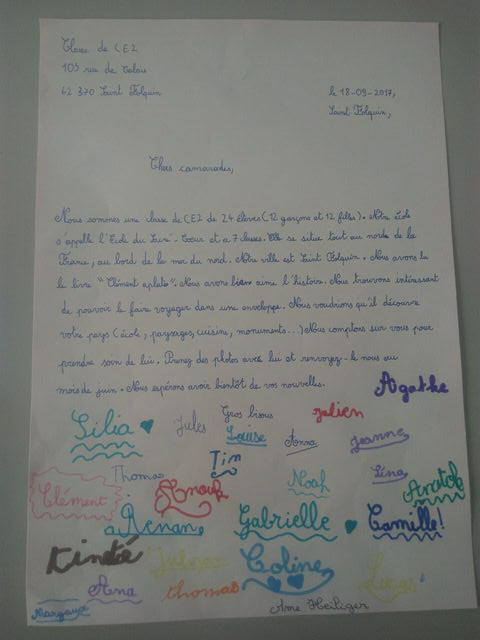 Classe de CE2
105 rue de Calais
62 370 Saint Folquin
le 18-09-2017,
Saint Folquin,
Chers camarades,
Nous sommes une classe de CE2 de 24 élèves (12 garçons et 12 filles). Notre école
s'appelle l'Ecole du Sacré-Coeur et a 7 classes. Elle se situe tout au nord de la
France, au bord de la mer du nord. Notre ville est Saint Folquin. Nous avons lu
le livre "Clément aplati". Nous avons bien aimé l'histoire. Nous trouvons intéressant
de pouvoir le faire voyager dans une enveloppe. Nous voudrions qu'il découvre
votre pays (école, paysages, cuisine, monuments...) Nous comptons sur vous pour
prendre soin de lui. Prenez des photos avec lui et renvoyez-le nous au
mois de juin. Nous espérons avoir bientôt de vos nouvelles.
Agathe
Gros bisous
Julien
Lilia
Jules
Louise
Anna
Jeanne
Tim
Thomas
Noah
Léna
Anatole
Clément
Anouk
Renan
Gabrielle
Camille!
Kimété
Coline
Lucas
Ana
thomas
Margaux
Ame Heiliger